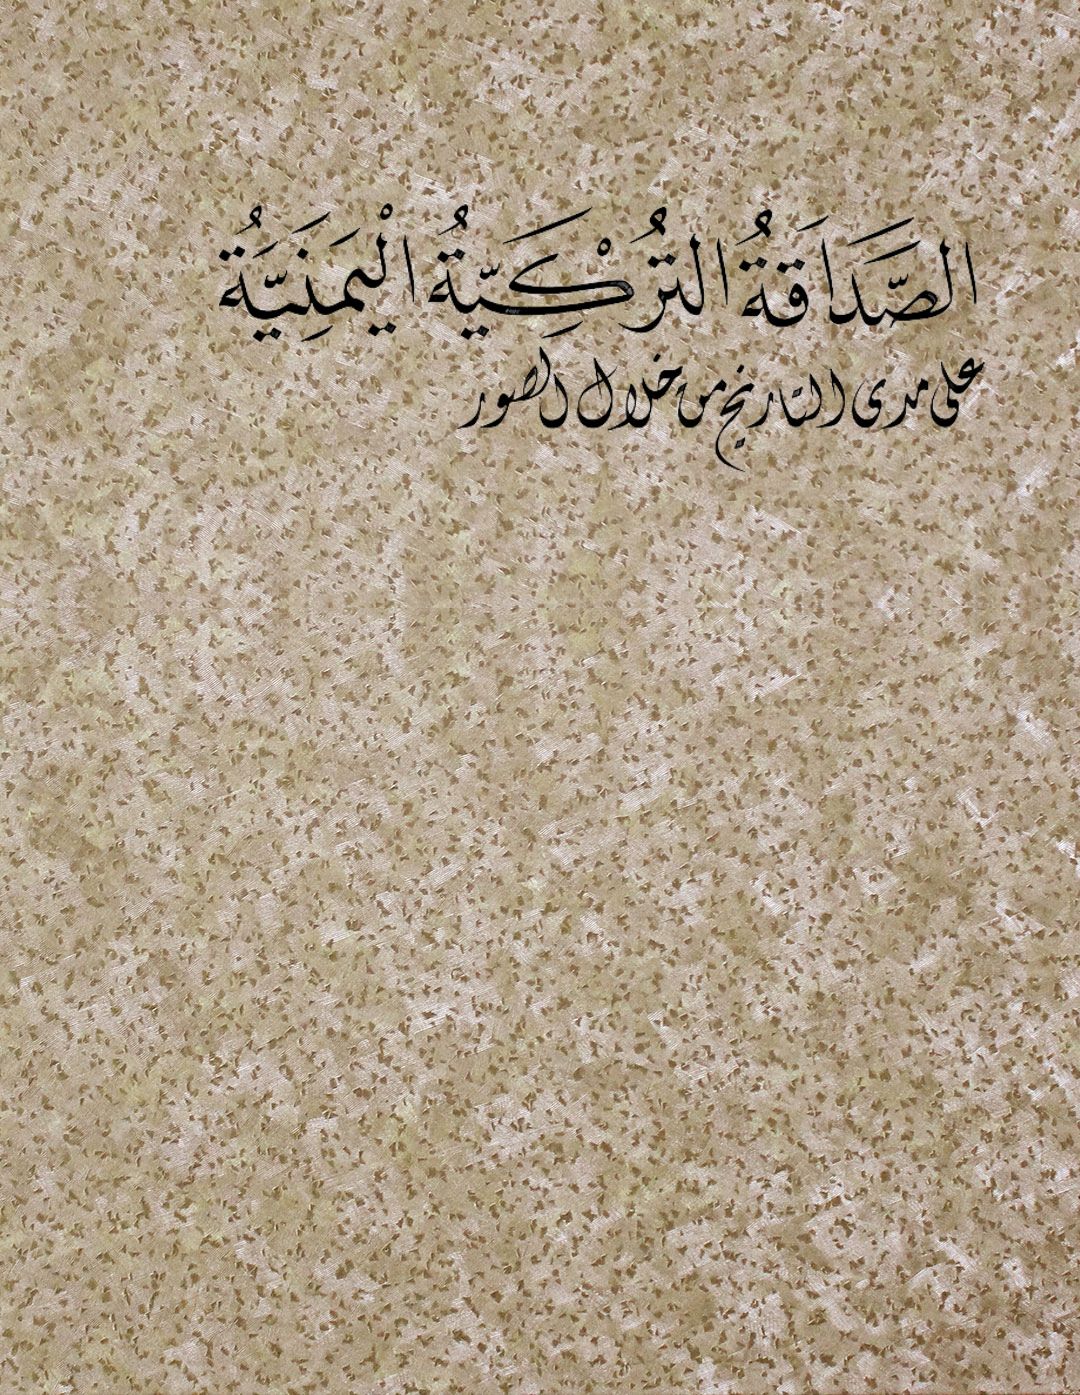 الصَّدَاقَةُ التُرْكِيَّةُ الْيَمَنِيَّةُ
على مدى التاريخ من خلال الصور